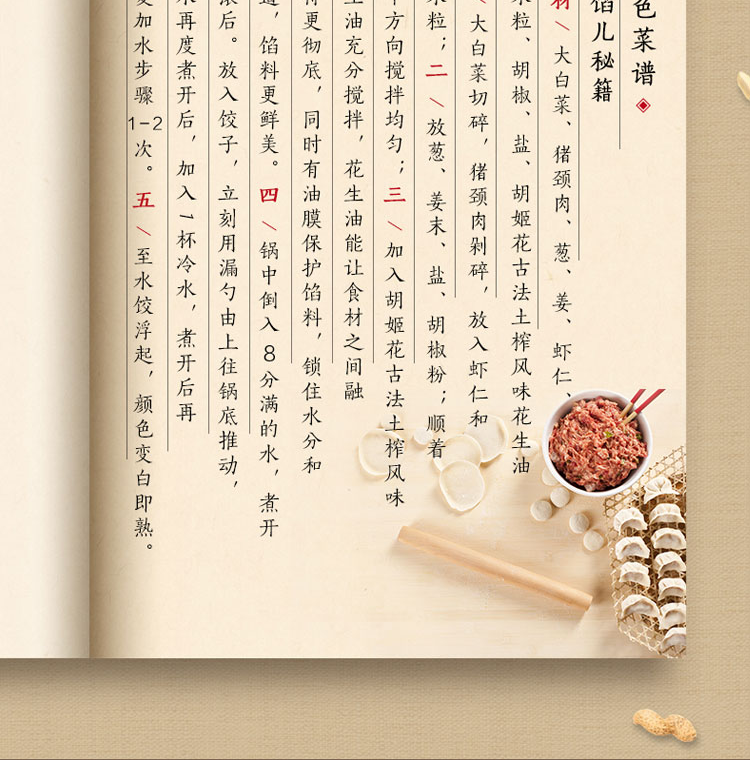 色菜谱
馅儿秘籍
材\大白菜、猪颈肉、葱、姜、虾仁、
米粒、胡椒、盐、胡姬花古法土榨风味花生油
\大白菜切碎，猪颈肉剁碎，放入虾仁和
米粒；二\放葱、姜末、盐、胡椒粉；顺着
方向搅拌均匀；三\加入胡姬花古法土榨风味
生油充分搅拌，花生油能让食材之间融
得更彻底，同时有油膜保护馅料，锁住水分和
道，馅料更鲜美。四\锅中倒入8分满的水，煮开
滚后。放入饺子，立刻用漏勺由上往锅底推动，
水再度煮开后，加入1杯冷水，煮开后再
复加水步骤1-2次。五\至水饺浮起，颜色变白即熟。